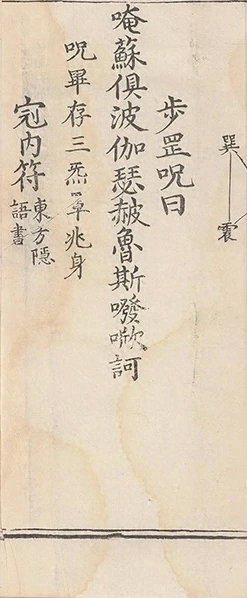 巽
震
步罡呪曰
唵蘇俱波伽瑟魯斯訶
呪畢存三炁罩兆身
内符
東方隱
語書